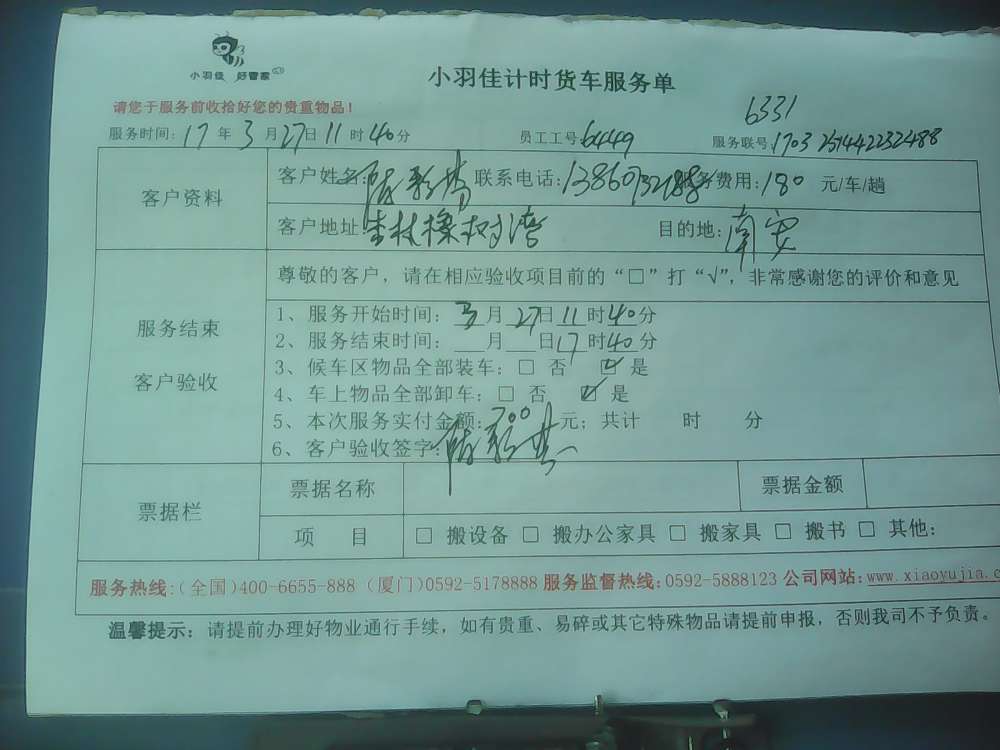 小羽佳 好管家
小羽佳计时货车服务单
请您于服务前收拾好您的贵重物品！
6331
服务时间：17年3月27日11时40分 员工工号：6449 服务联号：1703 2514422232488
客户资料
客户姓名： 联系电话：13860132188 服务费用：180 元/车/趟
客户地址 杏林橡树湾 目的地：南安
尊敬的客户，请在相应验收项目前的“□”打“√”，非常感谢您的评价和意见
服务结束
客户验收
1、服务开始时间：3月27日11时40分
2、服务结束时间：__月__日17时40分
3、候车区物品全部装车：□ 否 ☑ 是
4、车上物品全部卸车：□ 否 ☑ 是
5、本次服务实付金额：700元；共计 时 分
6、客户验收签字：
票据栏
票据名称 票据金额
项 目 □ 搬设备 □ 搬办公家具 □ 搬家具 □ 搬书 □ 其他：
服务热线：（全国）400-6655-888（厦门）0592-5178888 服务监督热线：0592-5888123 公司网站：www.xiaoyujia.c
温馨提示：请提前办理好物业通行手续，如有贵重、易碎或其它特殊物品请提前申报，否则我司不予负责。